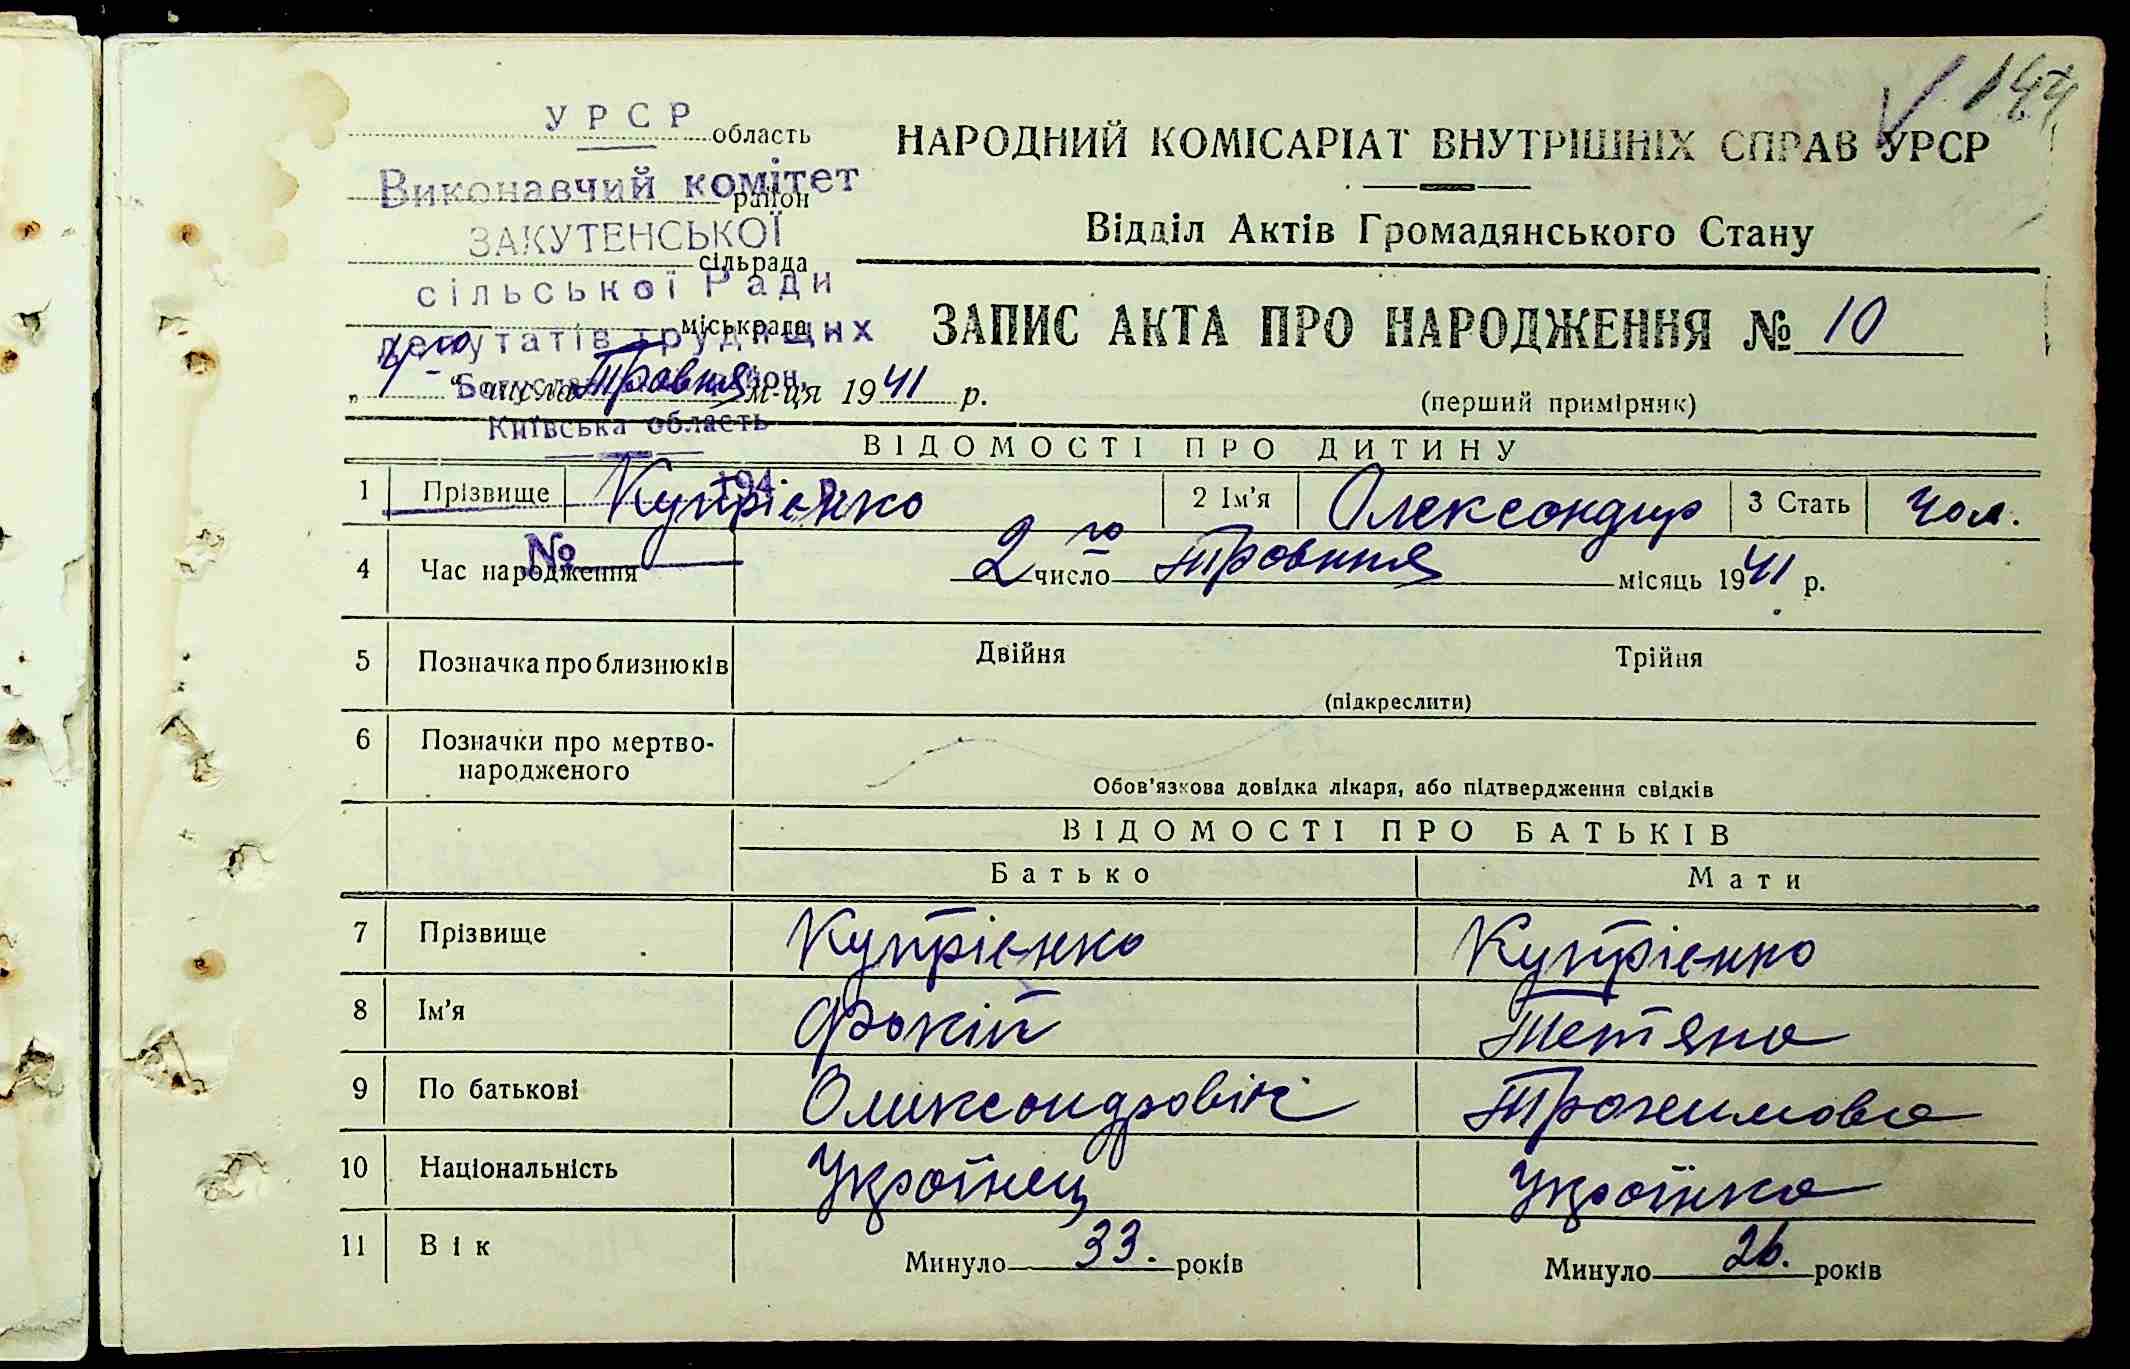 144
У Р С Р
область
Виконавчий комітет
район
ЗАКУТЕНСЬКОЇ
сільрада
сільської Ради
міськрада
депутатів трудящих
„4-го“ числа Травня м-ця 1941 р.
Київська область
194 р.
№
НАРОДНИЙ КОМІСАРІАТ ВНУТРІШНІХ СПРАВ УРСР
Відділ Актів Громадянського Стану
ЗАПИС АКТА ПРО НАРОДЖЕННЯ № 10
(перший примірник)
ВІДОМОСТІ ПРО ДИТИНУ
1 Прізвище Купрієнко 2 Ім'я Олександир 3 Стать Чол.
4 Час народження 2го число Травння місяць 1941 р.
5 Позначка про близнюків Двійня Трійня
(підкреслити)
6 Позначки про мертво-
народженого
Обов'язкова довідка лікаря, або підтвердження свідків
ВІДОМОСТІ ПРО БАТЬКІВ
Батько Мати
7 Прізвище Купрієнко Купрієнко
8 Ім'я Фокій Тетяна
9 По батькові Олександровіч Трохимовна
10 Національність Українец Українка
11 Вік Минуло 33. років Минуло 26. років